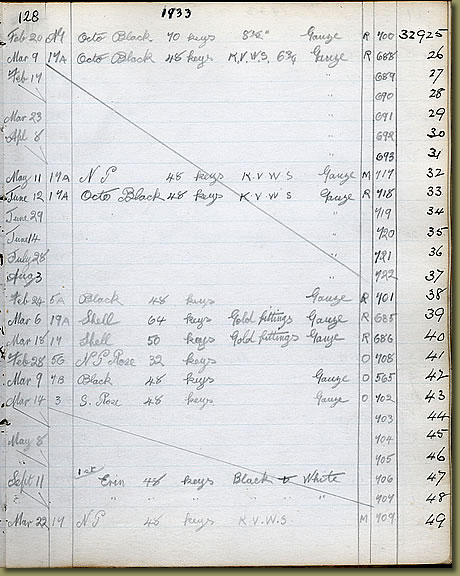 128 1933
Feb 20 Octo Black 70 keys 8¾" Gauze R 700 32925
Mar 9 19A Octo Black 48 keys K.V.W.S. 6¾ Gauze R 688 26
Feb 17 689 27
" 690 28
Mar 23 " 691 29
Apl 8 " 692 30
" 693 31
May 11 19A N P 48 keys K.V.W.S Gauze M 717 32
June 12 19A Octo Black 48 keys K V W S Gauze R 718 33
June 29 " 719 34
June 14 " 720 35
July 28 " 721 36
Aug 3 " 722 37
Feb 24 5A Black 48 keys Gauze R 701 38
Mar 6 19A Shell 64 keys Gold fittings Gauze R 685 39
Mar 18 17 Shell 50 keys Gold fittings Gauze R 686 40
Feb 28 56 N P Rose 32 keys O 708 41
Mar 9 7B Black 48 keys Gauze O 565 42
Mar 14 3 S. Rose 48 keys Gauze O 702 43
703 44
May 8 704 45
705 46
Sept 11 1st Erin 48 keys Black & White 706 47
" " " " 707 48
Mar 22 17 N P 48 keys K.V.W.S M 709 49